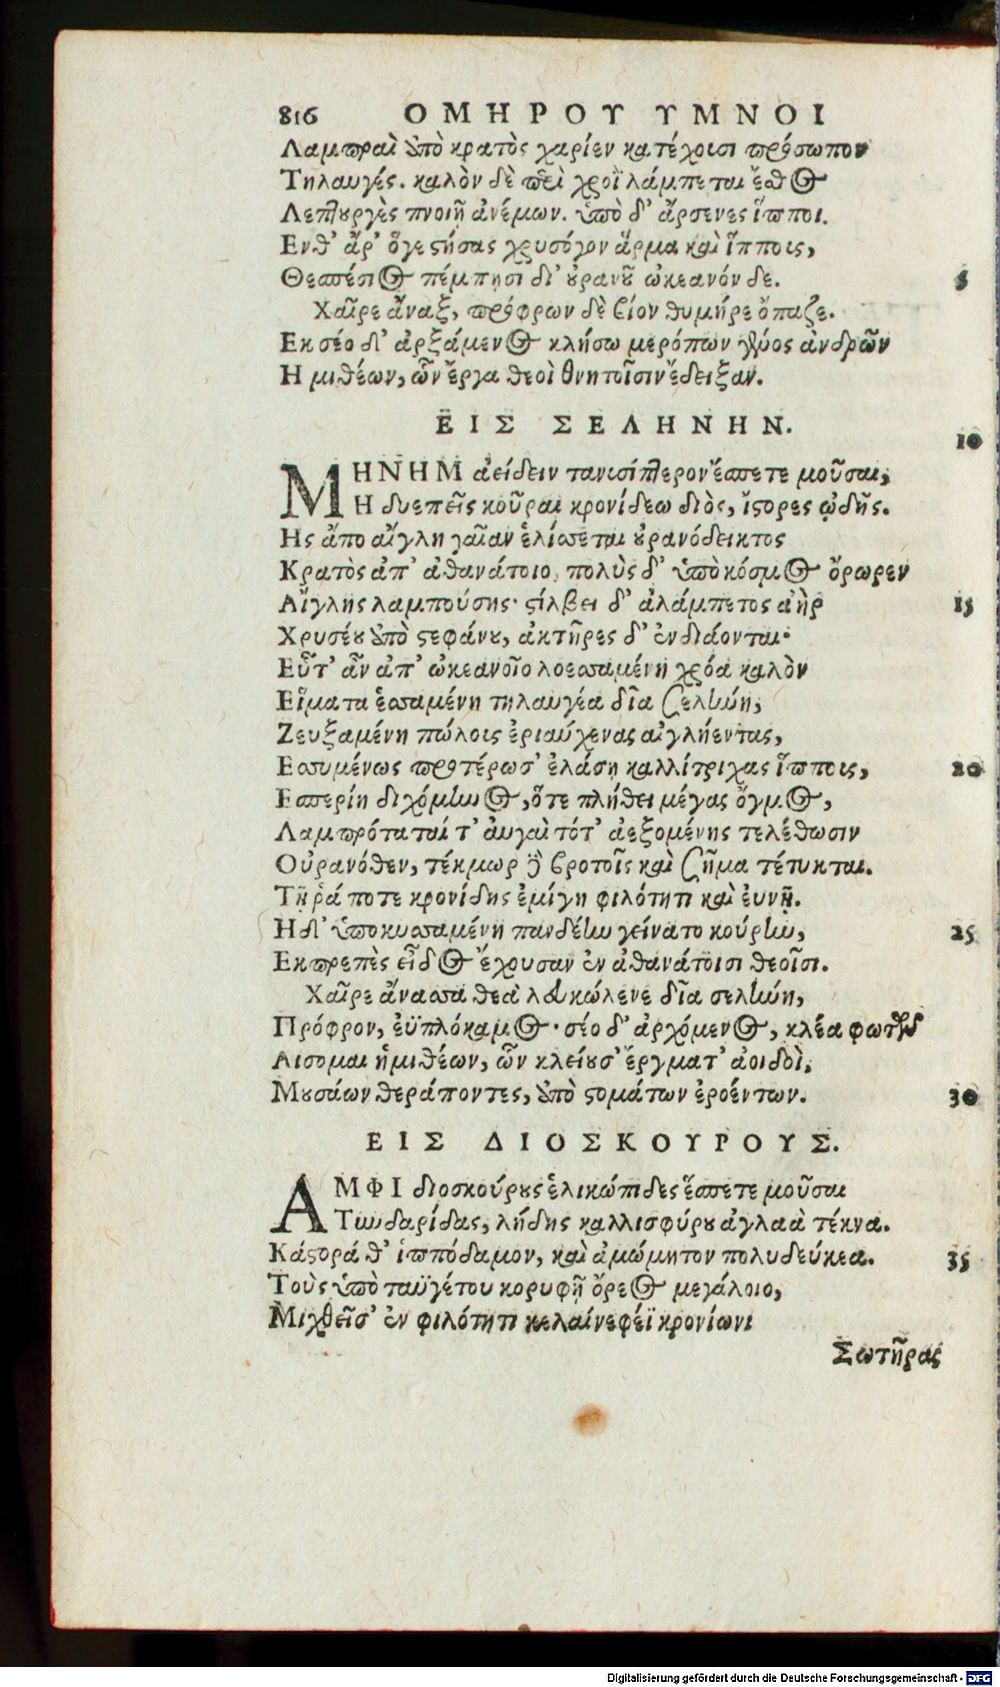 816 ΟΜΗΡΟΥ ΥΜΝΟΙ
Λαμπραὶ ἀπὸ κρατὸς χαρίεν κατέχουσι πρόσωπον
Τηλαυγές. καλὸν δὲ περὶ χροῒ λάμπεται ἔσθος
Λεπτουργὲς πνοιῇ ἀνέμων. ὑπὸ δ' ἄρσενες ἵπποι.
Ενθ' ἄρ' ὅγε στήσας χρυσόζυγον ἅρμα καὶ ἵππους,
Θεσπέσιος πέμπησι δι' οὐρανοῦ ὠκεανόν δε. 5
Χαῖρε ἄναξ, πρόφρων δὲ βίον θυμήρε ὄπαζε.
Εκ σέο δ' ἀρξάμενος κλῄσω μερόπων γένος ἀνδρῶν
Η μιθέων, ὧν ἔργα θεοὶ θνητοῖσιν ἔδειξαν.
ΕΙΣ ΣΕΛΗΝΗΝ.
10
ΜΗΝΗΜ ἀείδειν τανισίπτερον ἔσπετε μοῦσαι,
Η δυεπεῖς κοῦραι κρονίδεω διὸς, ἵστορες ᾠδῆς.
Ης ἄπο αἴγλη γαῖαν ἑλίσσεται οὐρανόδεικτος
Κρατὸς ἀπ' ἀθανάτοιο, πολὺς δ' ὑπὸ κόσμος ὄρωρεν
Αἴγλης λαμπούσης· στίλβει δ' ἀλάμπετος ἀὴρ 15
Χρυσέου ἀπὸ στεφάνου, ἀκτῆρες δ' ἐνδιάονται·
Εὖτ' ἂν ἀπ' ὠκεανοῖο λοεσσαμένη χρόα καλὸν
Εἵματα ἑσσαμένη τηλαυγέα δῖα σελήνη,
Ζευξαμένη πώλους ἐριαύχενας αἰγλήεντας,
Εσσυμένως προτέρωσ' ἐλάσῃ καλλίτριχας ἵππους, 20
Εσπερίη διχόμηνος, ὅτε πλήθει μέγας ὄγμος,
Λαμπρόταταί τ' αὐγαὶ τότ' ἀεξομένης τελέθωσιν
Οὐρανόθεν, τέκμωρ δὲ βροτοῖς καὶ σῆμα τέτυκται.
Τῇ ῥά ποτε κρονίδης ἐμίγη φιλότητι καὶ ἐυνῇ.
Η δ' ὑποκυσσαμένη πανδέην γείνατο κούρην, 25
Εκπρεπὲς εἶδος ἔχουσαν ἐν ἀθανάτοισι θεοῖσι.
Χαῖρε ἄνασσα θεὰ λευκώλενε δῖα σελήνη,
Πρόφρον, ἐϋπλόκαμος· σέο δ' ἀρχόμενος, κλέα φωτῶν
Αισομαι ἡμιθέων, ὧν κλείουσ' ἔργματ' ἀοιδοὶ,
Μουσάων θεράποντες, ἀπὸ στομάτων ἐροέντων. 30
ΕΙΣ ΔΙΟΣΚΟΥΡΟΥΣ.
ΑΜΦΙ διοσκούρους ἑλικώπιδες ἔσπετε μοῦσαι
Τυνδαρίδας, λήδης καλλισφύρου ἀγλαὰ τέκνα.
Κάστορά θ' ἱππόδαμον, καὶ ἀμώμητον πολυδεύκεα. 35
Τοὺς ὑπὸ ταϋγέτου κορυφῇ ὄρεος μεγάλοιο,
Μιχθεῖσ' ἐν φιλότητι κελαίνεφέϊ κρονίωνι
Σωτῆρας
Digitalisierung gefördert durch die Deutsche Forschungsgemeinschaft - DFG